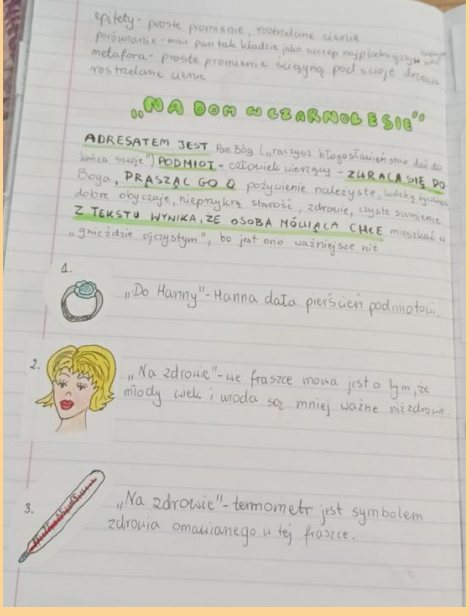 epitety - proste promienie, rozstrzelane cienie
porównanie - mnie pan tak kładzie jako szczep najpłodniejszy
metafora - proste promienie ściągną pod swoje drzewa
rozstrzelane cienie
„NA DOM W CZARNOLESIE"
ADRESATEM JEST Pan Bóg („raczysz błogosławieństwo dać do
końca swoje") PODMIOT - człowiek wierzący - ZWRACA SIĘ DO
Boga, PRASZĄC GO O pożywienie należyste, ludzką życzliwość
dobre obyczaje, nieprzykrą starość, zdrowie, czyste sumienie
Z TEKSTU WYNIKA, ŻE OSOBA MÓWIĄCA CHCE mieszkać w
„gnieździe ojczystym", bo jest ono ważniejsze niż
1.
„Do Hanny" - Hanna dała pierścień podmiotowi.
2.
„Na zdrowie" - we fraszce mowa jest o tym, że
młody wiek i uroda są mniej ważne niż zdrowie.
3.
„Na zdrowie" - termometr jest symbolem
zdrowia omawianego w tej fraszce.